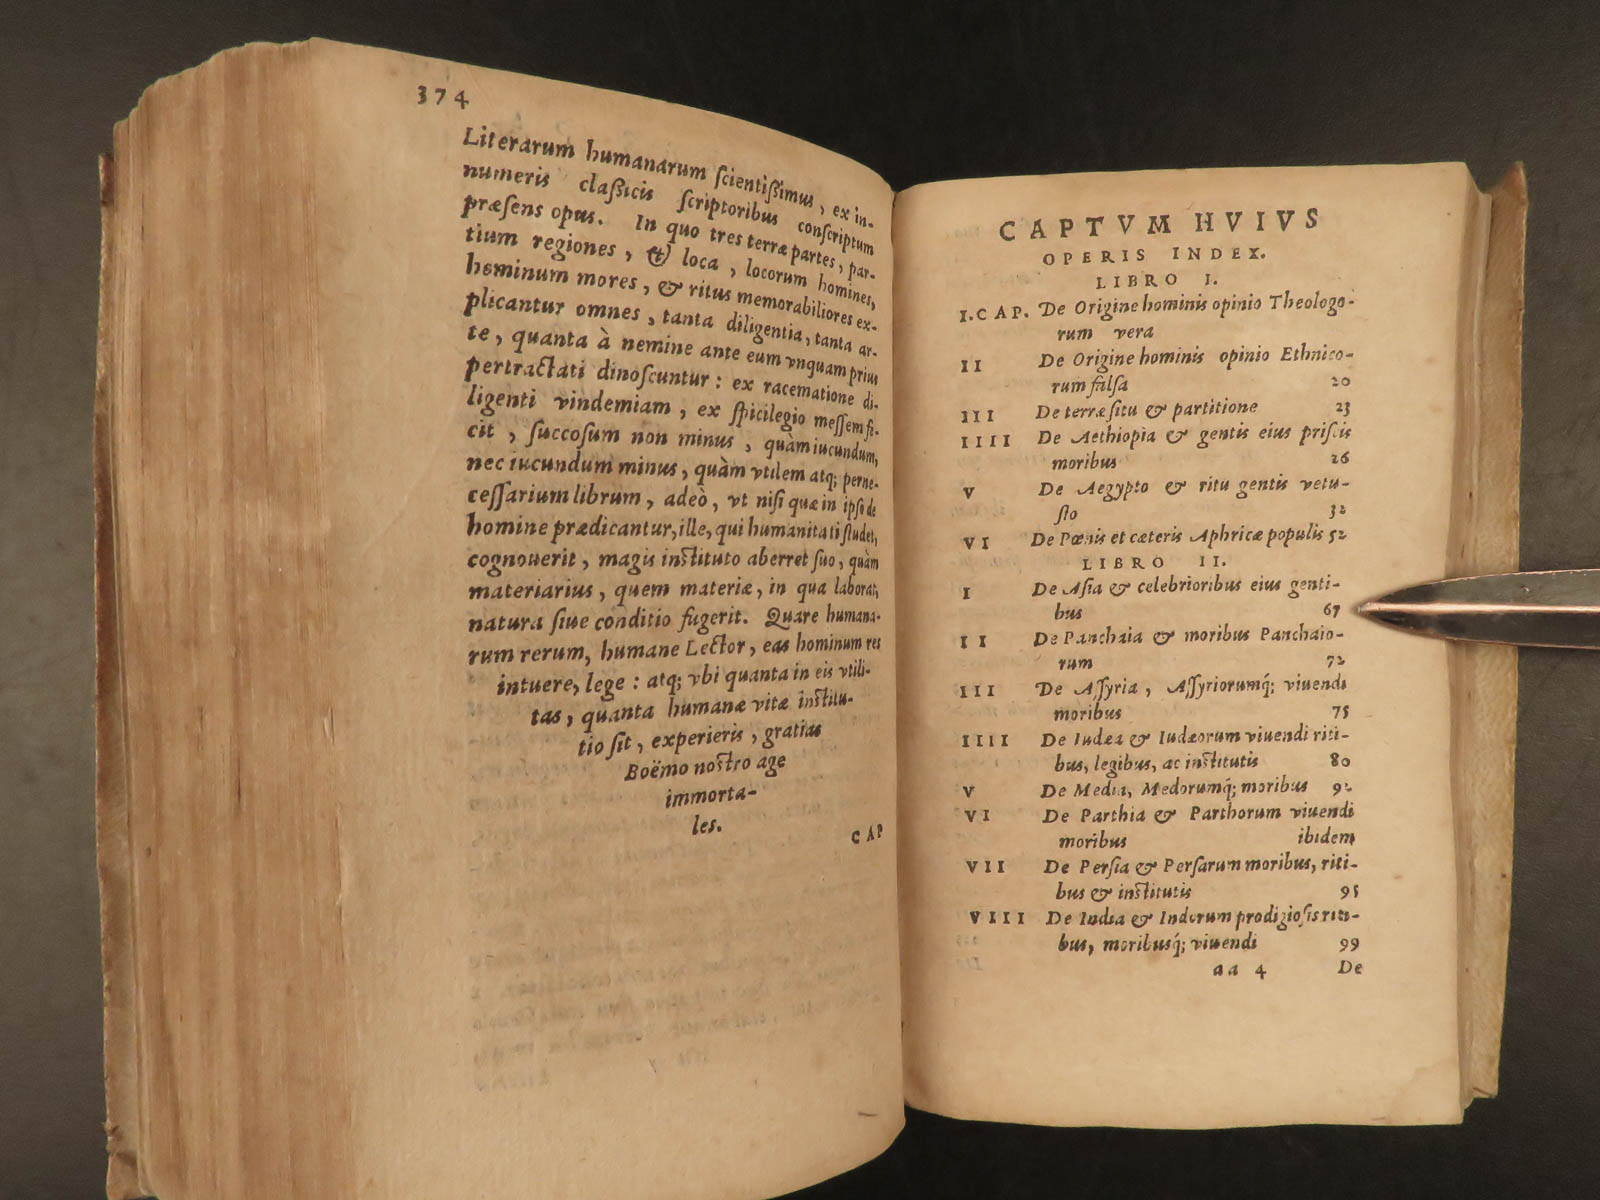 374
Literarum humanarum ſcientiſſimus, ex in-
numeris claſſicis ſcriptoribus conſcriptum
præſens opus. In quo tres terræ partes, par-
tium regiones, & loca, locorum homines,
hominum mores, & ritus memorabiliores ex-
plicantur omnes, tanta diligentia, tanta ar-
te, quanta à nemine ante eum vnquam prius
pertractati dinoſcuntur: ex racematione di-
ligenti vindemiam, ex ſpicilegio meſſem fe-
cit, ſuccoſum non minus, quàm iucundum,
nec iucundum minus, quàm vtilem atq; perne-
ceſſarium librum, adeò, vt niſi quæ in ipſo de
homine prædicantur, ille, qui humanitati ſtudet,
cognouerit, magis inſtituto aberret ſuo, quàm
materiarius, quem materiæ, in qua laborat,
natura ſiue conditio fugerit. Quare humana-
rum rerum, humane Lector, eas hominum res
intuere, lege: atq; vbi quanta in eis vtili-
tas, quanta humanæ vitæ inſtitu-
tio ſit, experieris, gratias
Boëmo noſtro age
immorta-
les.
CAP
CAPTVM HVIVS
OPERIS INDEX.
LIBRO I.
I. CAP. De Origine hominis opinio Theologo-
rum vera
II De Origine hominis opinio Ethnico-
rum falſa 20
III De terræ ſitu & partitione 23
IIII De Aethiopia & gentis eius priſcis
moribus 26
V De Aegypto & ritu gentis vetu-
ſto 32
VI De Pœnis et cæteris Aphricæ populis 52
LIBRO II.
I De Aſia & celebrioribus eius genti-
bus 67
II De Panchaia & moribus Panchaio-
rum 72
III De Aſſyria, Aſſyriorumq́; viuendi
moribus 75
IIII De Iudæa & Iudæorum viuendi riti-
bus, legibus, ac inſtitutis 80
V De Media, Medorumq́; moribus 92
VI De Parthia & Parthorum viuendi
moribus ibidem
VII De Perſia & Perſarum moribus, riti-
bus & inſtitutis 95
VIII De India & Indorum prodigioſis riti-
bus, moribusq́; viuendi 99
aa 4 De